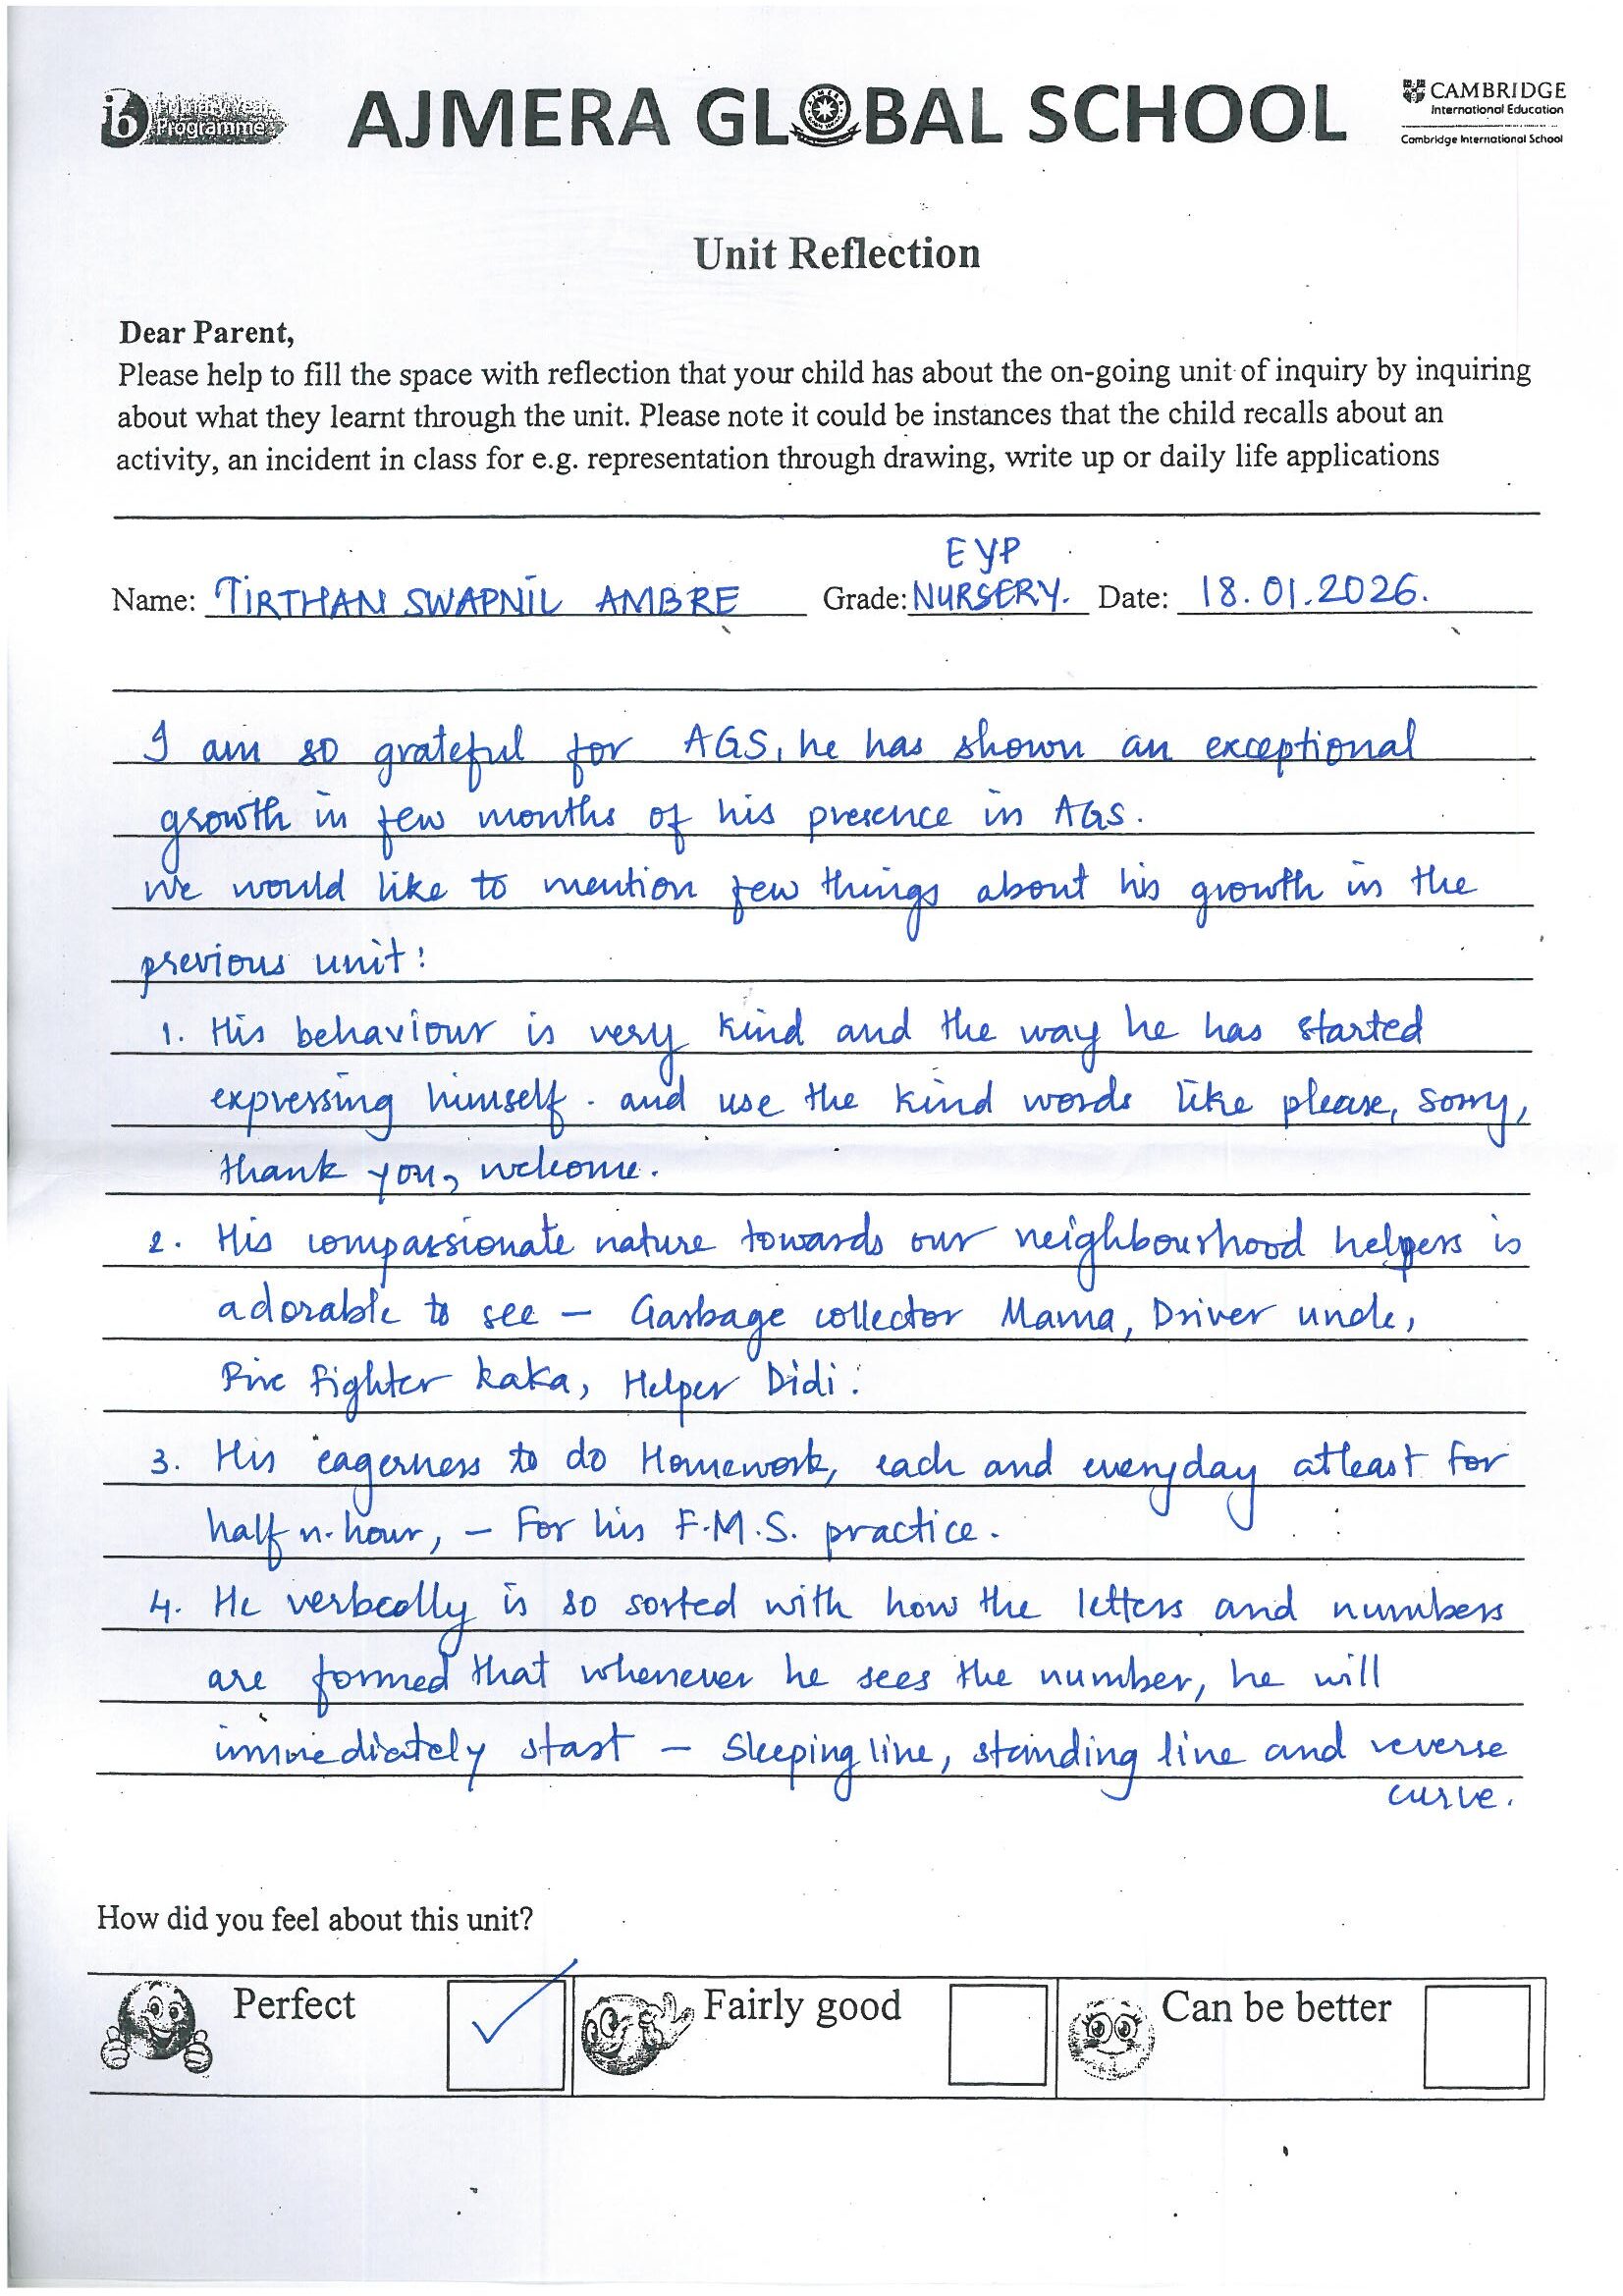 ib Primary Years Programme
AJMERA GLOBAL SCHOOL
CAMBRIDGE
International Education
Cambridge International School
Unit Reflection
Dear Parent,
Please help to fill the space with reflection that your child has about the on-going unit of inquiry by inquiring
about what they learnt through the unit. Please note it could be instances that the child recalls about an
activity, an incident in class for e.g. representation through drawing, write up or daily life applications
EYP
Name: TIRTHAN SWAPNIL AMBRE Grade: NURSERY. Date: 18.01.2026.
I am so grateful for AGS, he has shown an exceptional
growth in few months of his presence in AGS.
We would like to mention few things about his growth in the
previous unit:
1. His behaviour is very kind and the way he has started
expressing himself. and use the kind words like please, sorry,
thank you, welcome.
2. His compassionate nature towards our neighbourhood helpers is
adorable to see – Garbage collector Mama, Driver uncle,
Fire fighter kaka, Helper Didi.
3. His eagerness to do Homework, each and everyday atleast for
half n. hour, – For his F.M.S. practice.
4. He verbeolly is so sorted with how the letters and numbers
are formed that whenever he sees the number, he will
immediately start – Sleeping line, standing line and reverse
curve.
How did you feel about this unit?
Perfect ✓ Fairly good Can be better